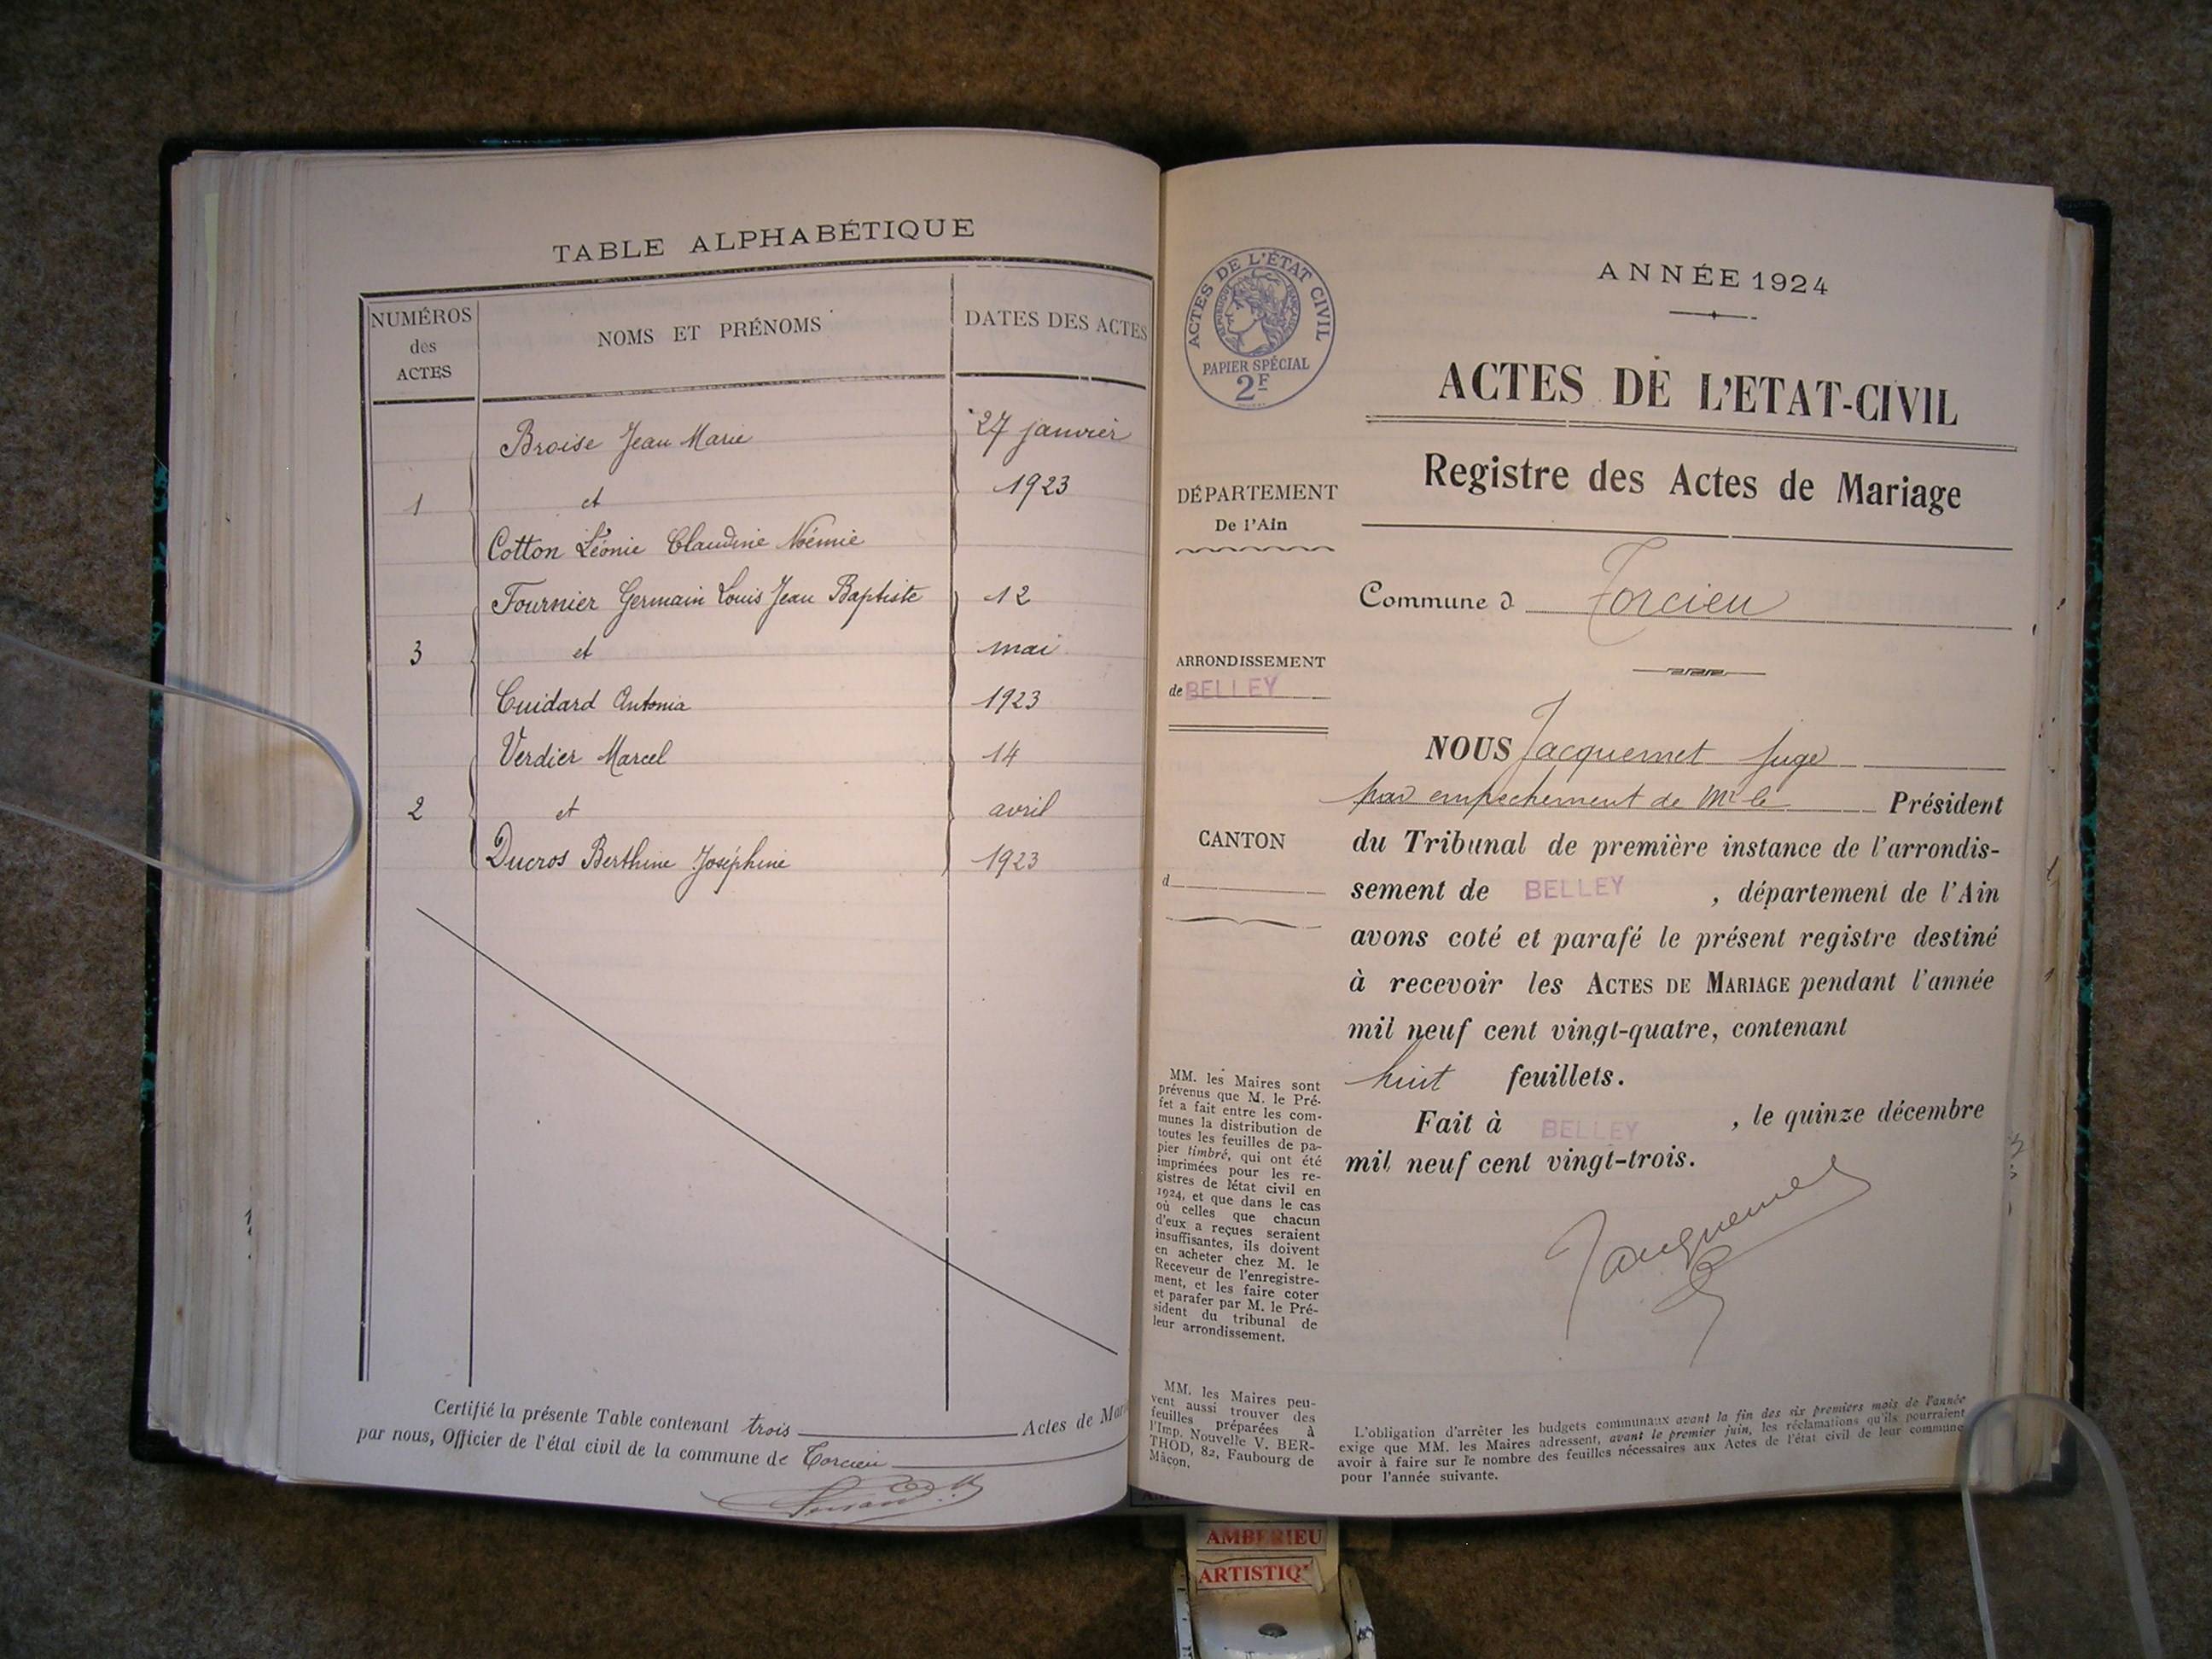 TABLE ALPHABÉTIQUE
NUMÉROS
des
ACTES
NOMS ET PRÉNOMS
DATES DES ACTES
Broise Jean Marie
27 janvier
1923
1
et
Cotton Léonie Claudine Noémie
Fournier Germain Louis Jean Baptiste
12
3
et
mai
Cuidard Antonia
1923
Verdier Marcel
14
2
et
avril
Ducros Berthine Joséphine
1923
Certifié la présente Table contenant trois Actes de Mar
par nous, Officier de l'état civil de la commune de Torcieu
ACTES DE L'ÉTAT CIVIL
RÉPUBLIQUE FRANÇAISE
PAPIER SPÉCIAL
2F
DÉPARTEMENT
De l'Ain
ARRONDISSEMENT
de BELLEY
CANTON
d
MM. les Maires sont
prévenus que M. le Pré-
fet a fait entre les com-
munes la distribution de
toutes les feuilles de pa-
pier timbré, qui ont été
imprimées pour les re-
gistres de l'état civil en
1924, et que dans le cas
où celles que chacun
d'eux a reçues seraient
insuffisantes, ils doivent
en acheter chez M. le
Receveur de l'enregistre-
ment, et les faire coter
et parafer par M. le Pré-
sident du tribunal de
leur arrondissement.
MM. les Maires peu-
vent aussi trouver des
feuilles préparées à
l'Imp. Nouvelle V. BER-
THOD, 82, Faubourg de
Mâcon.
ANNÉE 1924
ACTES DE L'ETAT-CIVIL
Registre des Actes de Mariage
Commune d Torcieu
NOUS Jacquemet Juge
par empechement de Mr le Président
du Tribunal de première instance de l'arrondis-
sement de BELLEY , département de l'Ain
avons coté et parafé le présent registre destiné
à recevoir les ACTES DE MARIAGE pendant l'année
mil neuf cent vingt-quatre, contenant
huit feuillets.
Fait à BELLEY , le quinze décembre
mil neuf cent vingt-trois.
Jacquemet
L'obligation d'arrêter les budgets communaux avant la fin des six premiers mois de l'année
exige que MM. les Maires adressent, avant le premier juin, les réclamations qu'ils pourraient
avoir à faire sur le nombre des feuilles nécessaires aux Actes de l'état civil de leur commune
pour l'année suivante.
AMBERIEU
ARTISTIQ